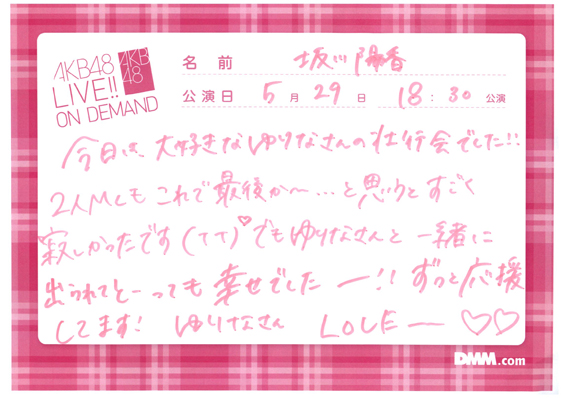 AKB48
LIVE!!
ON DEMAND
AKB
48
名前 坂川陽香
公演日 5月29日 18:30公演
今日は、大好きなゆりなさんの壮行会でした!!
2人MCもこれで最後か〜...と思うとすごく
寂しかったです(TT)♡でもゆりなさんと一緒に
出られてとーっても幸せでしたー!!ずっと応援
してます!ゆりなさん LOVEー♡♡
DMM.com